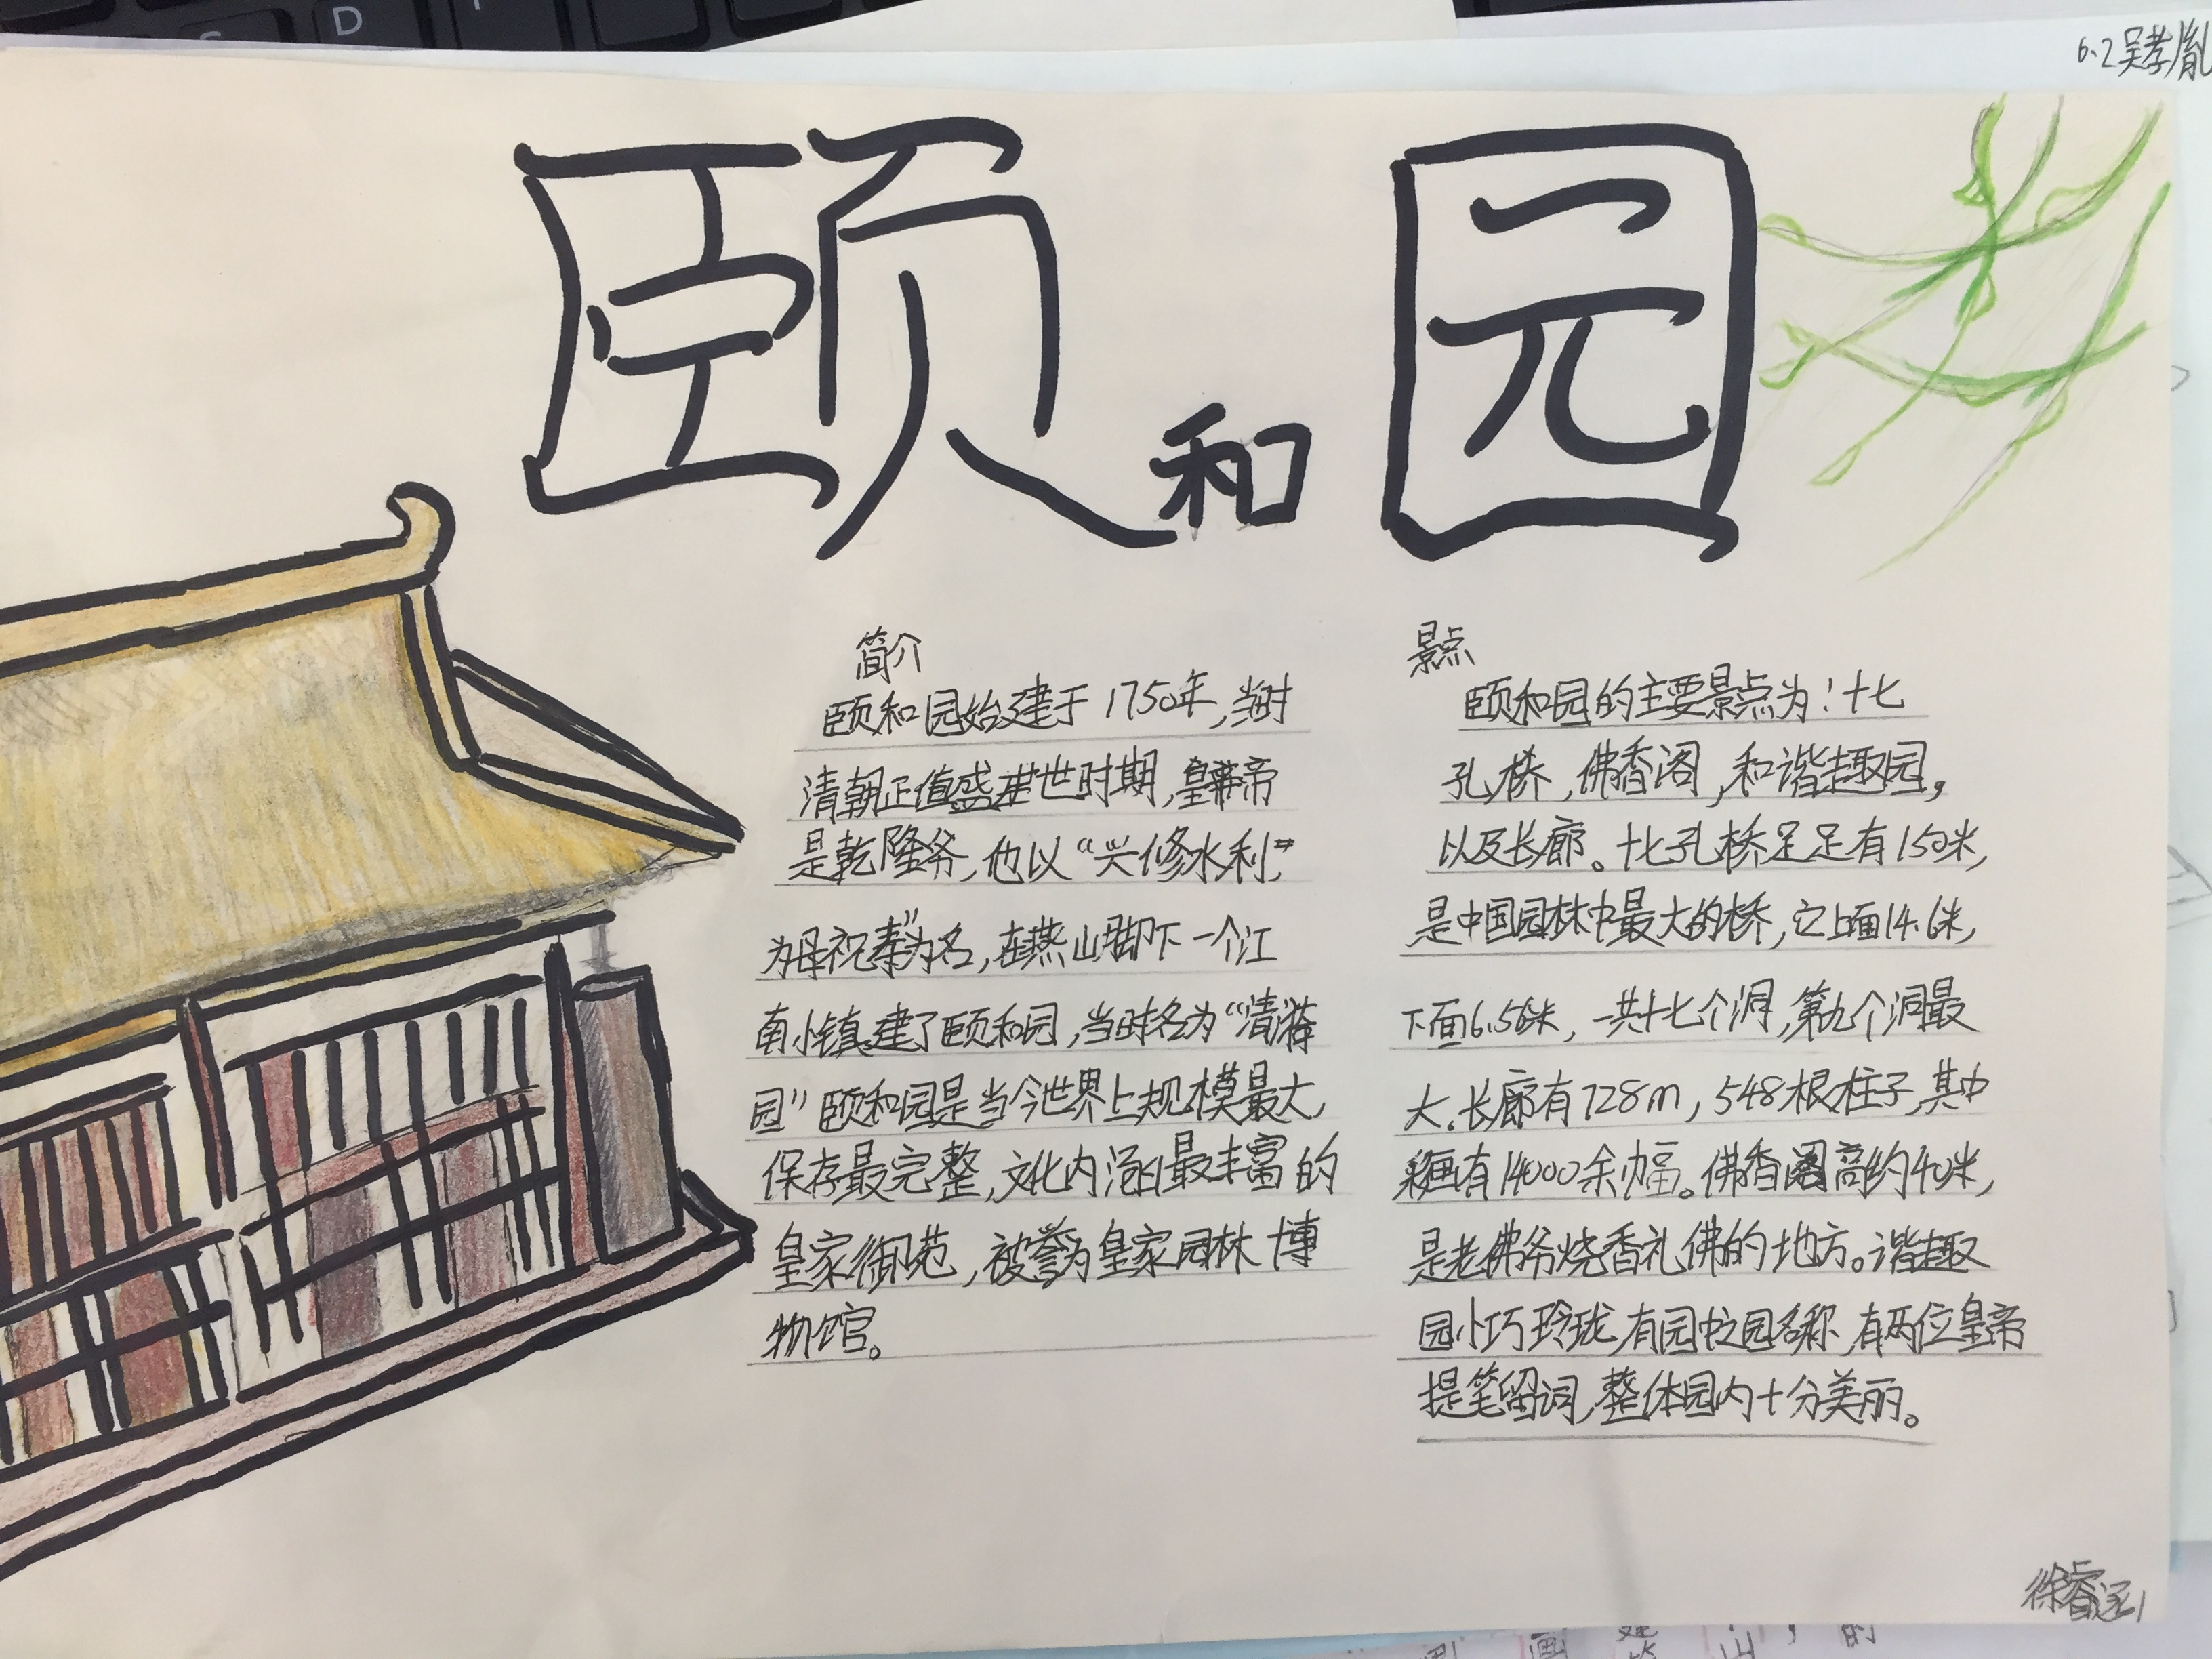 6.2吴孝胤
颐和园
简介
颐和园始建于1750年,当时
清朝正值盛世时期,皇帝
是乾隆爷,他以“兴修水利,”
为母祝寿”为名,在燕山脚下一个江
南小镇建了颐和园,当时名为“清漪
园”颐和园是当今世界上规模最大,
保存最完整,文化内涵最丰富的
皇家御苑,被誉为皇家园林博
物馆。
景点
颐和园的主要景点为:十七
孔桥,佛香阁,和谐趣园,
以及长廊。十七孔桥足足有150米,
是中国园林中最大的桥,它上面14.6米,
下面6.56米,一共十七个洞,第九个洞最
大.长廊有728m,548根柱子,其中
彩画有14000余幅。佛香阁高约40米,
是老佛爷烧香礼佛的地方。谐趣
园小巧玲珑,有园中之园名称,有两位皇帝
提笔留词,整体园内十分美丽。
徐睿涵
D
S